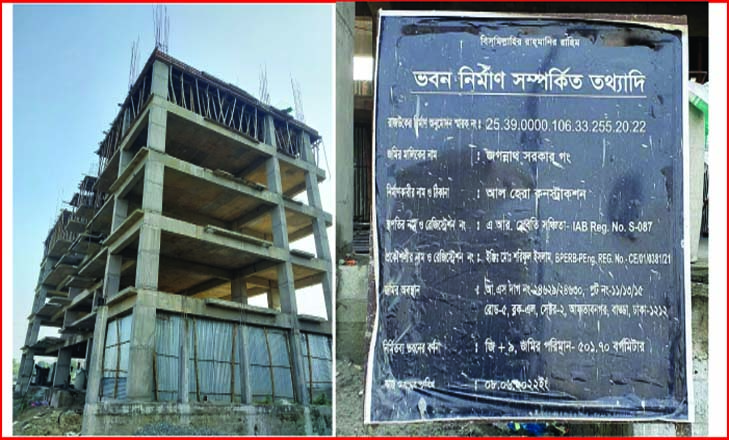 বিসমিল্লাহির রাহমানির রাহিম
ভবন নির্মাণ সম্পর্কিত তথ্যাদি
রাজউকের নির্মাণ অনুমোদন স্মারক নং : 25.39.0000.106.33.255.20.22
জমির মালিকের নাম : জগন্নাথ সরকার গং
নির্মাণকারীর নাম ও ঠিকানা : আল হেরা কনস্ট্রাকশন
স্থপতির নাম ও রেজিস্ট্রেশন নং : এ আর. সঞ্চিতা- IAB Reg. No. S-087
প্রকৌশলীর নাম ও রেজিস্ট্রেশন নং : ইঞ্জিঃ মোঃ শরিফুল ইসলাম, BPERB-PEng. REG. NO.- CE/01/0381/21
জমির অবস্থান : আর.এস দাগ নং-২৪৬২৯/২৪৬৩০, প্লট নং-১১/১৩/১৫
রোড-৫, ব্লক-এল, সেক্টর-২, আফতাবনগর, বাড্ডা, ঢাকা-১২১২
নির্মিতব্য ভবনের বর্ণনা : জি + ৯, জমির পরিমান- ৫০১.৭০ বর্গমিটার
০৮.০৬.২০২২ইং